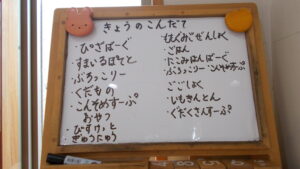 きょうのこんだて
・ぴざばーぐ
・すまいるぽてと
・ぶろっこりー
・くだもの
・こんそめすーぷ
おやつ
・びすけっと
・ぎゅうにゅう
・ごはん
・にこみはんばーぐ
・ぶろっこりー・こんそめすーぷ
ごごしょく
・いもきんとん
・くだくさんすーぷ